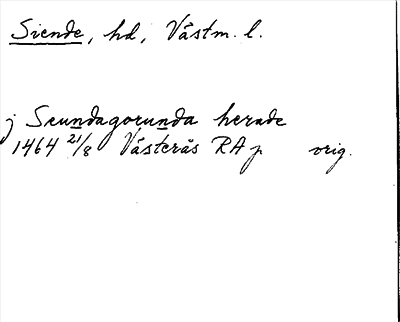 Siende, hd, Västm. l.
j Seundagorunda herade
1464 21/8 Västerås RA p orig.